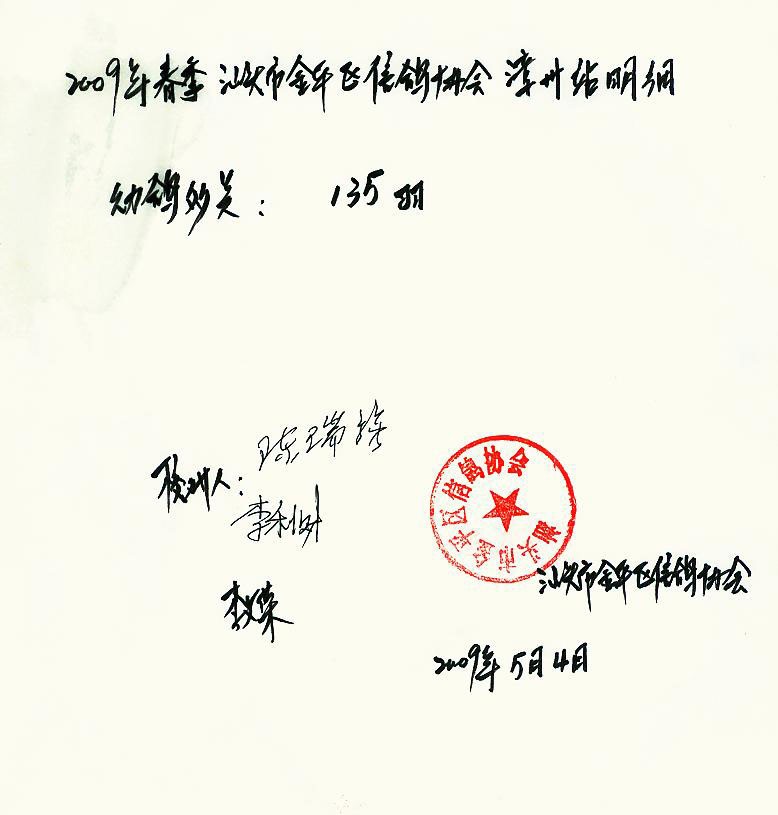 2009年春季汕头市金平区信鸽协会漳州站明细
幼鸽外关： 135羽
核对人：
李利树
汕头市金平区信鸽协会
汕头市金平区信鸽协会
2009年5月4日